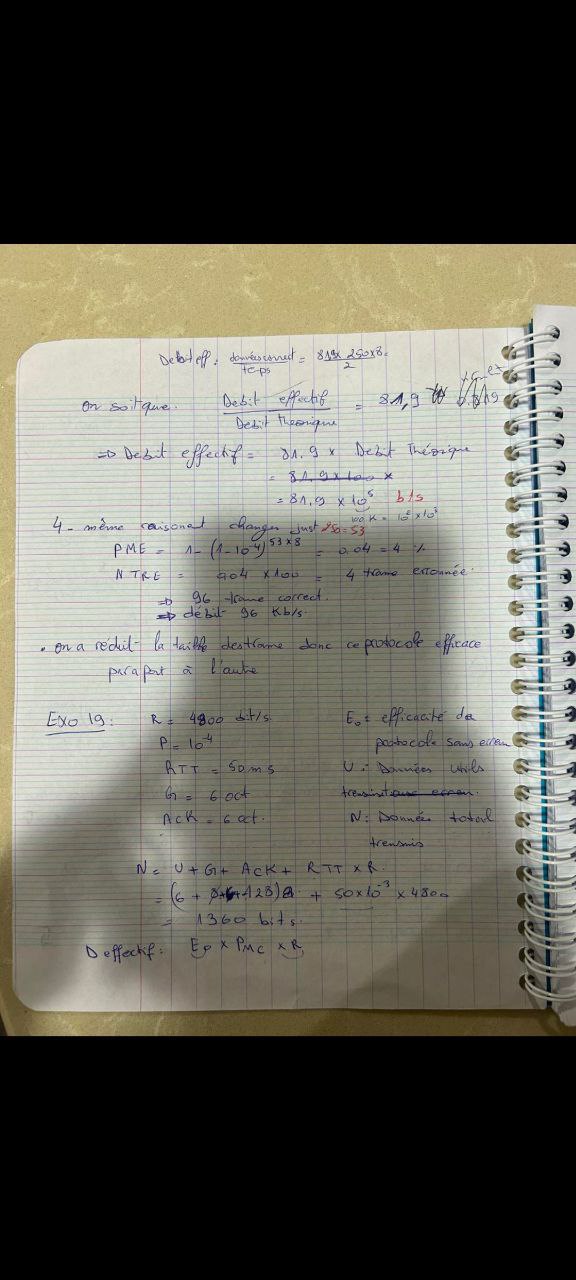 Debit eff : données correct / temps = 819 x 250 x 8 / 2
On sait que. Debit effectif / Debit theorique = 81,9
=> Debit effectif = 81.9 x Debit Théorique
= 81.9 x 100 x
= 81,9 x 10⁵ b/s
100 K = 10² x 10³
4 - même raisonent changer just 250=53
PME = 1 - (1-10⁻⁴)⁵³ˣ⁸ = 0.04 = 4 %
NTRE = 904 x 100 = 4 trame erronnée.
=> 96 trame correct.
=> débit 96 Kb/s
• on a réduit la taille destrame donc ce protocole efficace
paraport à l'autre
Exo 19 : R = 4800 bit/s E₀ = efficacité de
P = 10⁻⁴ protocole sans erreur
RTT = 50 ms U : Données utils
G = 6 oct transmit aux erreur.
ACK = 6 oct. N : Données total
transmis
N = U + G + ACK + RTT x R.
= (6 + 6 + 128)8 + 50x10⁻³ x 4800
= 1360 bits.
D effectif : E₀ x PMC x R